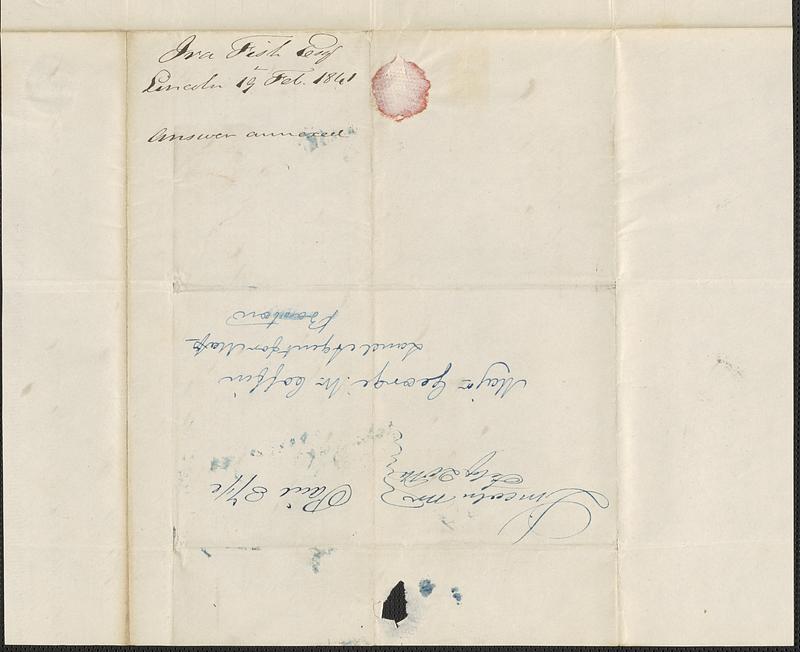 Ira Fish Esq
Lincoln 19 Feb. 1841
Answer annexed
Lincoln Me
Feby 20th
Paid
Majr George W Coffin
Land Agent for Mass
Boston